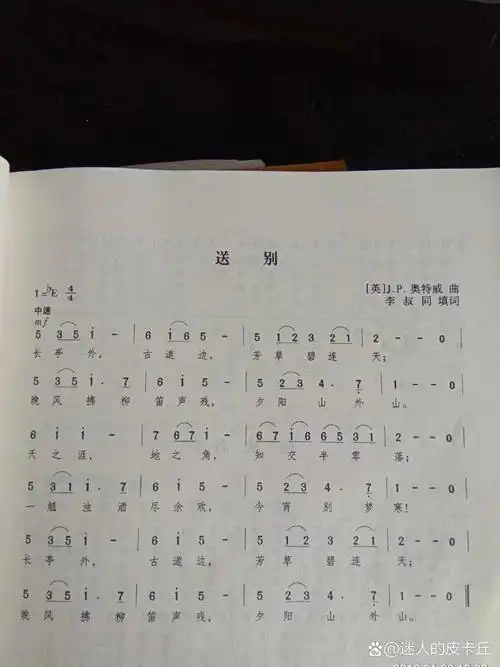 送 别
1=♭E 4/4
[英]J.P. 奥特威 曲
李 叔 同 填词
中速
mf
5 3 5 i - | 6 i 6 5 - | 5 1 2 3 2 1 | 2 - - 0 |
长 亭 外, 古 道 边, 芳 草 碧 连 天;
5 3 5 i . 7 | 6 i 5 - | 5 2 3 4 . 7 | 1 - - 0 |
晚 风 拂 柳 笛 声 残, 夕 阳 山 外 山。
6 i i - | 7 6 7 i - | 6 7 i 6 6 5 3 1 | 2 - - 0 |
天 之 涯, 地 之 角, 知 交 半 零 落;
5 3 1 i . 7 | 6 i 5 - | 5 2 3 4 . 7 | 1 - - 0 |
一 瓢 浊 酒 尽 余 欢, 今 宵 别 梦 寒!
5 3 5 i - | 6 i 5 - | 5 1 2 3 2 1 | 2 - - 0 |
长 亭 外, 古 道 边, 芳 草 碧 连 天;
5 3 5 i . 7 | 6 i 5 - | 5 2 3 4 . 7 | 1 - - 0 ‖
晚 风 拂 柳 笛 声 残, 夕 阳 山 外 山。
迷人的皮卡丘